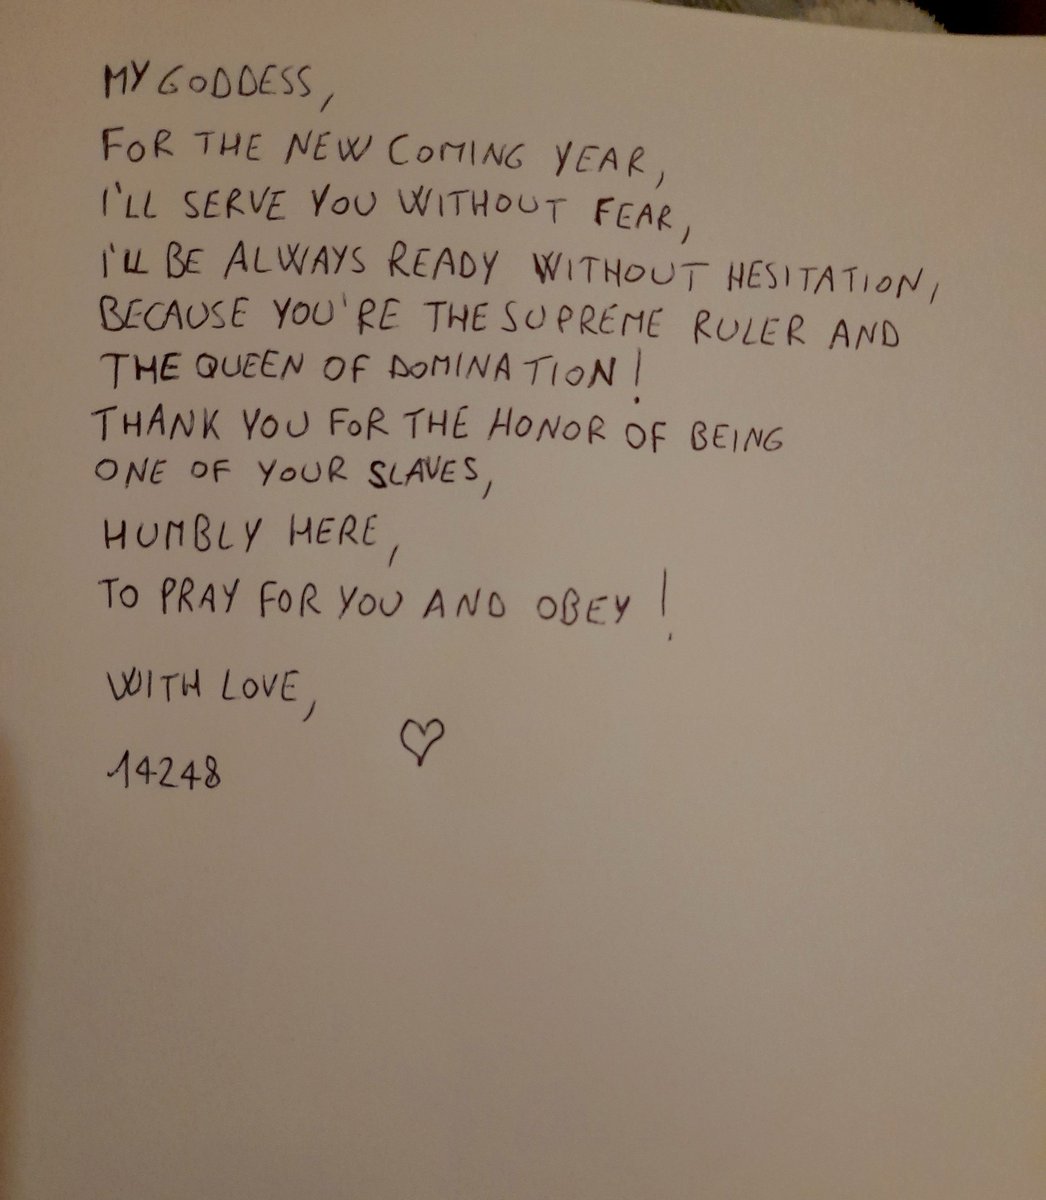 MY GODDESS,
FOR THE NEW COMING YEAR,
I'LL SERVE YOU WITHOUT FEAR,
I'LL BE ALWAYS READY WITHOUT HESITATION,
BECAUSE YOU'RE THE SUPREME RULER AND
THE QUEEN OF DOMINATION!
THANK YOU FOR THE HONOR OF BEING
ONE OF YOUR SLAVES,
HUMBLY HERE,
TO PRAY FOR YOU AND OBEY!
WITH LOVE,
♡
14248